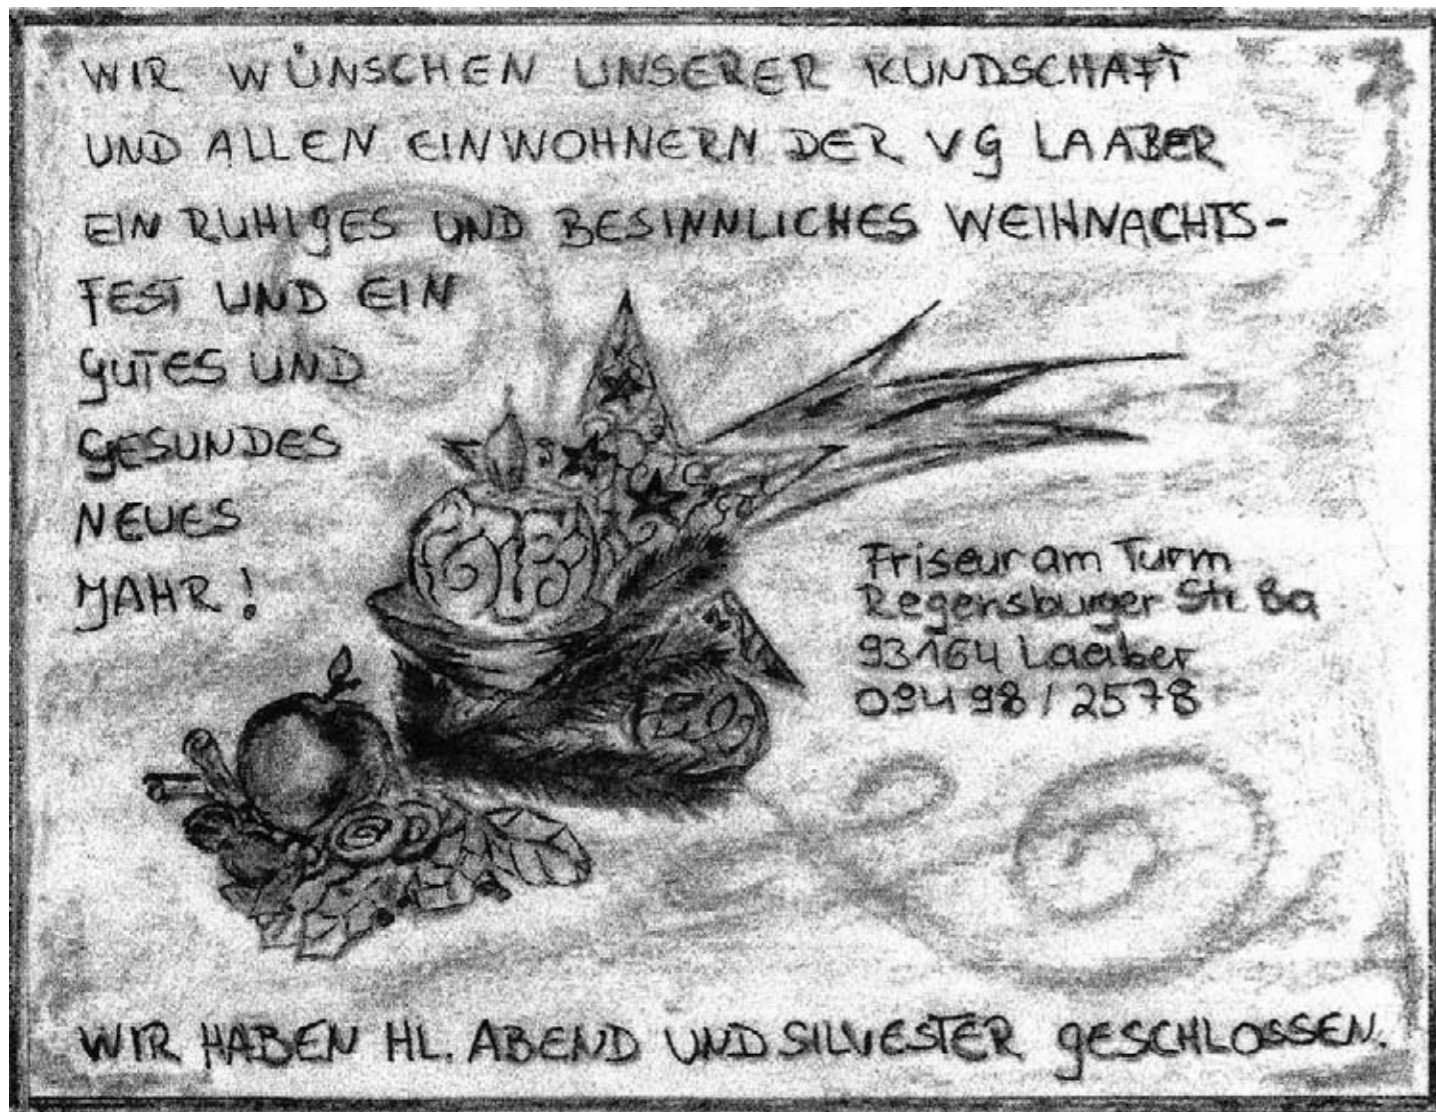 WIR WÜNSCHEN UNSERER KUNDSCHAFT
UND ALLEN EINWOHNERN DER VG LAABER
EIN RUHIGES UND BESINNLICHES WEIHNACHTS-
FEST UND EIN
GUTES UND
GESUNDES
NEUES
JAHR!
Friseur am Turm
Regensburger Str. 8a
93164 Laaber
09498/2578
WIR HABEN HL. ABEND UND SILVESTER GESCHLOSSEN.